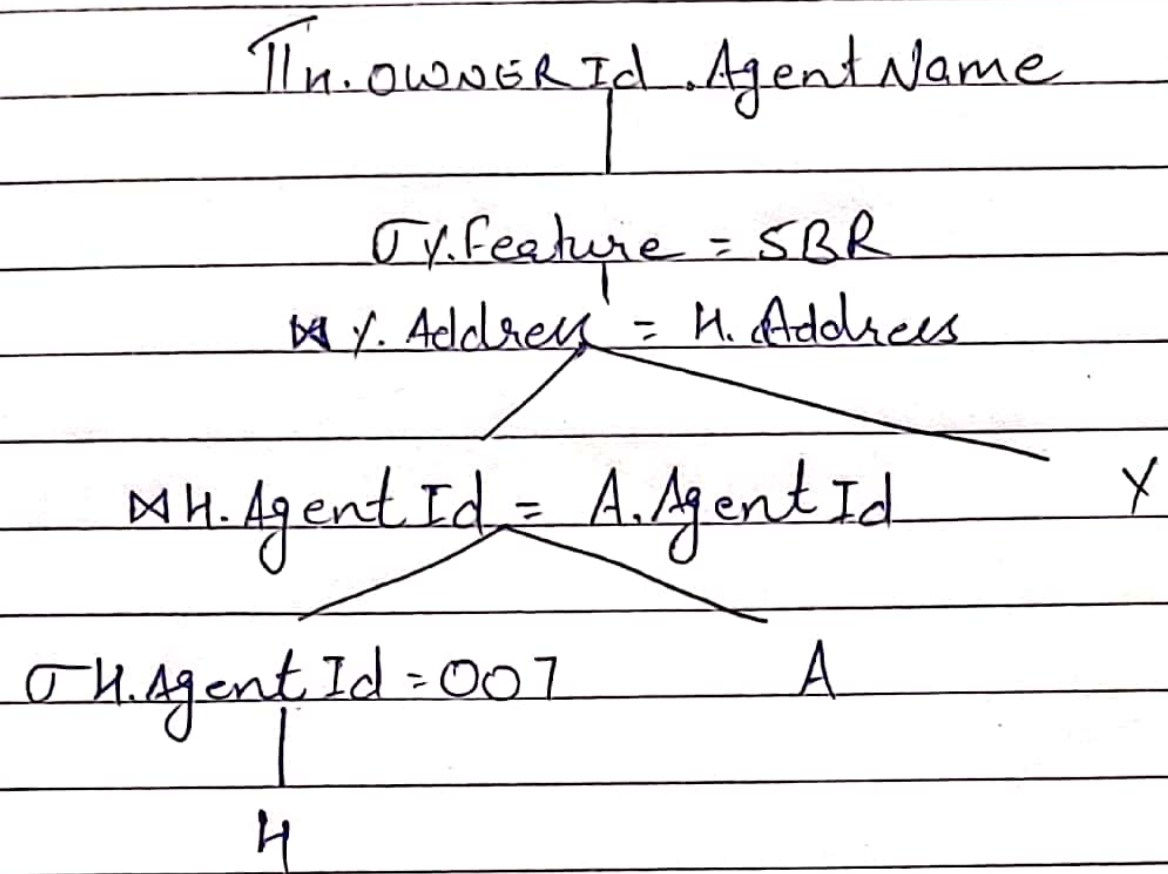 πH.OWNERId.AgentName
σY.Feature = 5BR
⋈ Y.Address = H.Address
⋈H.AgentId = A.AgentId Y
σH.AgentId=007 A
H